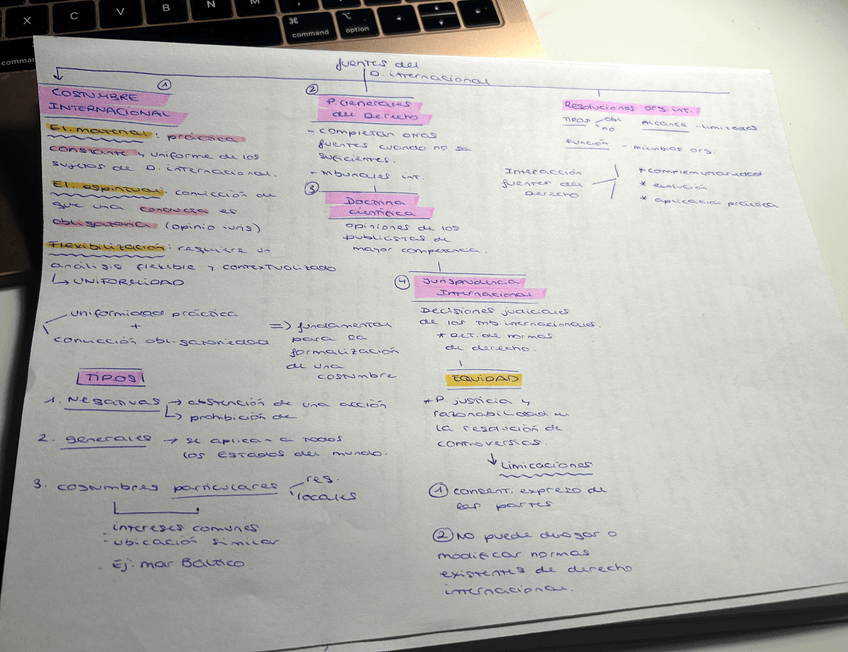 X
C
V
B
N
M
<
>
⌘
command
⌥
option
comma
fuentes del
D. internacional
①
COSTUMBRE
INTERNACIONAL
El. material: práctica
constante y uniforme de los
sujetos de D. internacional.
El. espiritual: convicción de
que una conducta es
obligatoria (opinio iuris)
Flexibilización: requiere un
análisis flexible y contextualizado
↳ UNIFORMIDAD
uniformidad práctica
+
convicción obligatoriedad
=> fundamental
para la
formalización
de una
costumbre
TIPOS
1. Negativas → abstención de una acción
↳ prohibición de
2. generales → se aplican a todos
los Estados del mundo.
3. costumbres particulares
reg.
locales
- intereses comunes
- ubicación similar
. Ej: mar Báltico
②
P. Generales
del Derecho
- completar otras
fuentes cuando no son
suficientes.
- tribunales int.
③
Doctrina
científica
opiniones de los
publicistas de
mayor competencia.
④ Jurisprudencia
Internacional
Decisiones judiciales
de los trib internacionales.
* DET. de normas
de derecho.
EQUIDAD
* P. justicia y
razonabilidad en
la resolución de
controversias.
↓ Limitaciones
① consent. expreso de
las partes
② No puede derogar o
modificar normas
existentes de derecho
internacional.
Resoluciones org int.
TIPOS
obl
no
Alcance - limitados
Función - miembros org.
Interacción
fuentes del
Derecho
* complementariedad
* evolución
* aplicación práctica